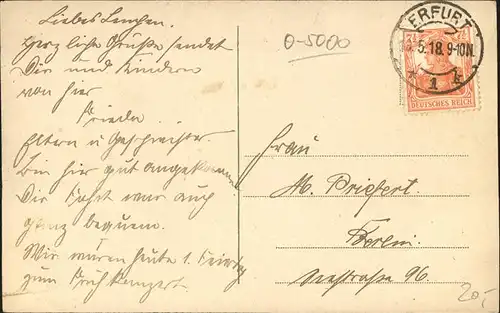 Liebes Lenchen.
Herzliche Grüße sendet
Dir und Kindern
von hier
Frieda . .
Eltern u Geschwister.
Bin hier gut angekommen
Die Fahrt war auch
ganz bequem.
Wir waren heute 1. Feiertag
zum Früh Konzert.
0-5000
ERFURT
5.18. 9-10N.
* 1 k
DEUTSCHES REICH
Frau
M. Priefert.
Berlin.
Seestraße 96.
20,-